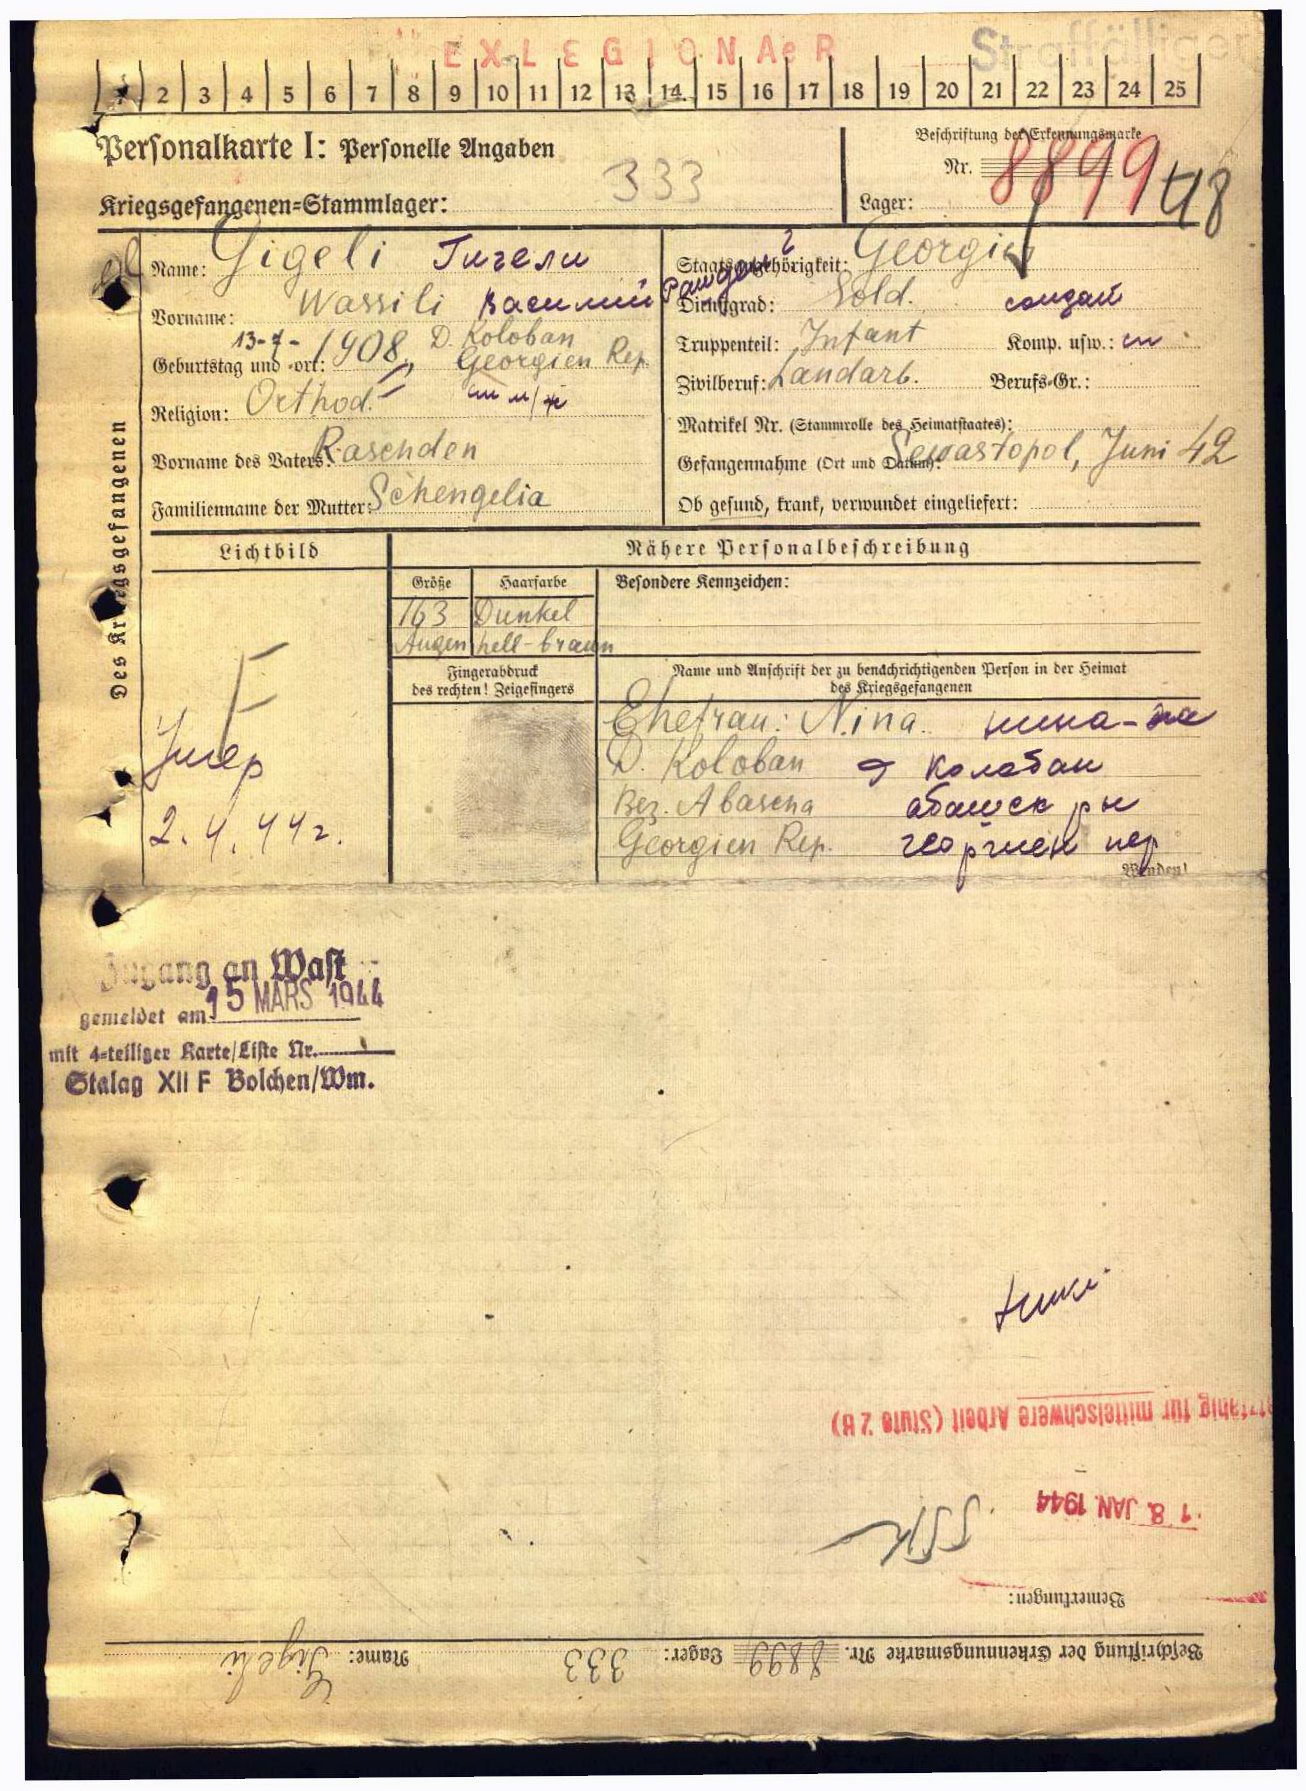 EXLEGIONAeR
Straffälliger
1 2 3 4 5 6 7 8 9 10 11 12 13 14 15 16 17 18 19 20 21 22 23 24 25
Personalkarte I: Personelle Angaben
Beschriftung der Erkennungsmarke
Nr. 8899
333
Kriegsgefangenen=Stammlager:
Lager:
Des Kriegsgefangenen
Name: Gigeli Гигели
Vorname: Wassili Василий
13-7- D. Koloban
Geburtstag und -ort: 1908, Georgien Rep.
Religion: Orthod.
Vorname des Vaters: Rasenden
Familienname der Mutter: Schengelia
Staatsangehörigkeit: Georgien
Dienstgrad: Sold. солдат
Truppenteil: Infant Komp. usw.:
Zivilberuf: Landarb. Berufs=Gr.:
Matrikel Nr. (Stammrolle des Heimatstaates):
Gefangennahme (Ort und Datum): Sewastopol, Juni 42
Ob gesund, krank, verwundet eingeliefert:
Lichtbild
Nähere Personalbeschreibung
Größe Haarfarbe Besondere Kennzeichen:
163 Dunkel
Augen hell-braun
Fingerabdruck
des rechten! Zeigefingers
Name und Anschrift der zu benachrichtigenden Person in der Heimat
des Kriegsgefangenen
Ehefrau: Nina
D. Koloban Колобан
Bez. Abascha
Georgien Rep.
Wenden!
Умер
2.4.44г.
Zugang an Wast
gemeldet am 15 MARS 1944
mit 4=teiliger Karte/Liste Nr.
Stalag XII F Bolchen/Wm.
für mittelschwere Arbeit (Stufe 2 B)
18. JAN. 1944
Bemerkungen:
Beschriftung der Erkennungsmarke Nr. 8899 Lager: 333 Name: Gigeli